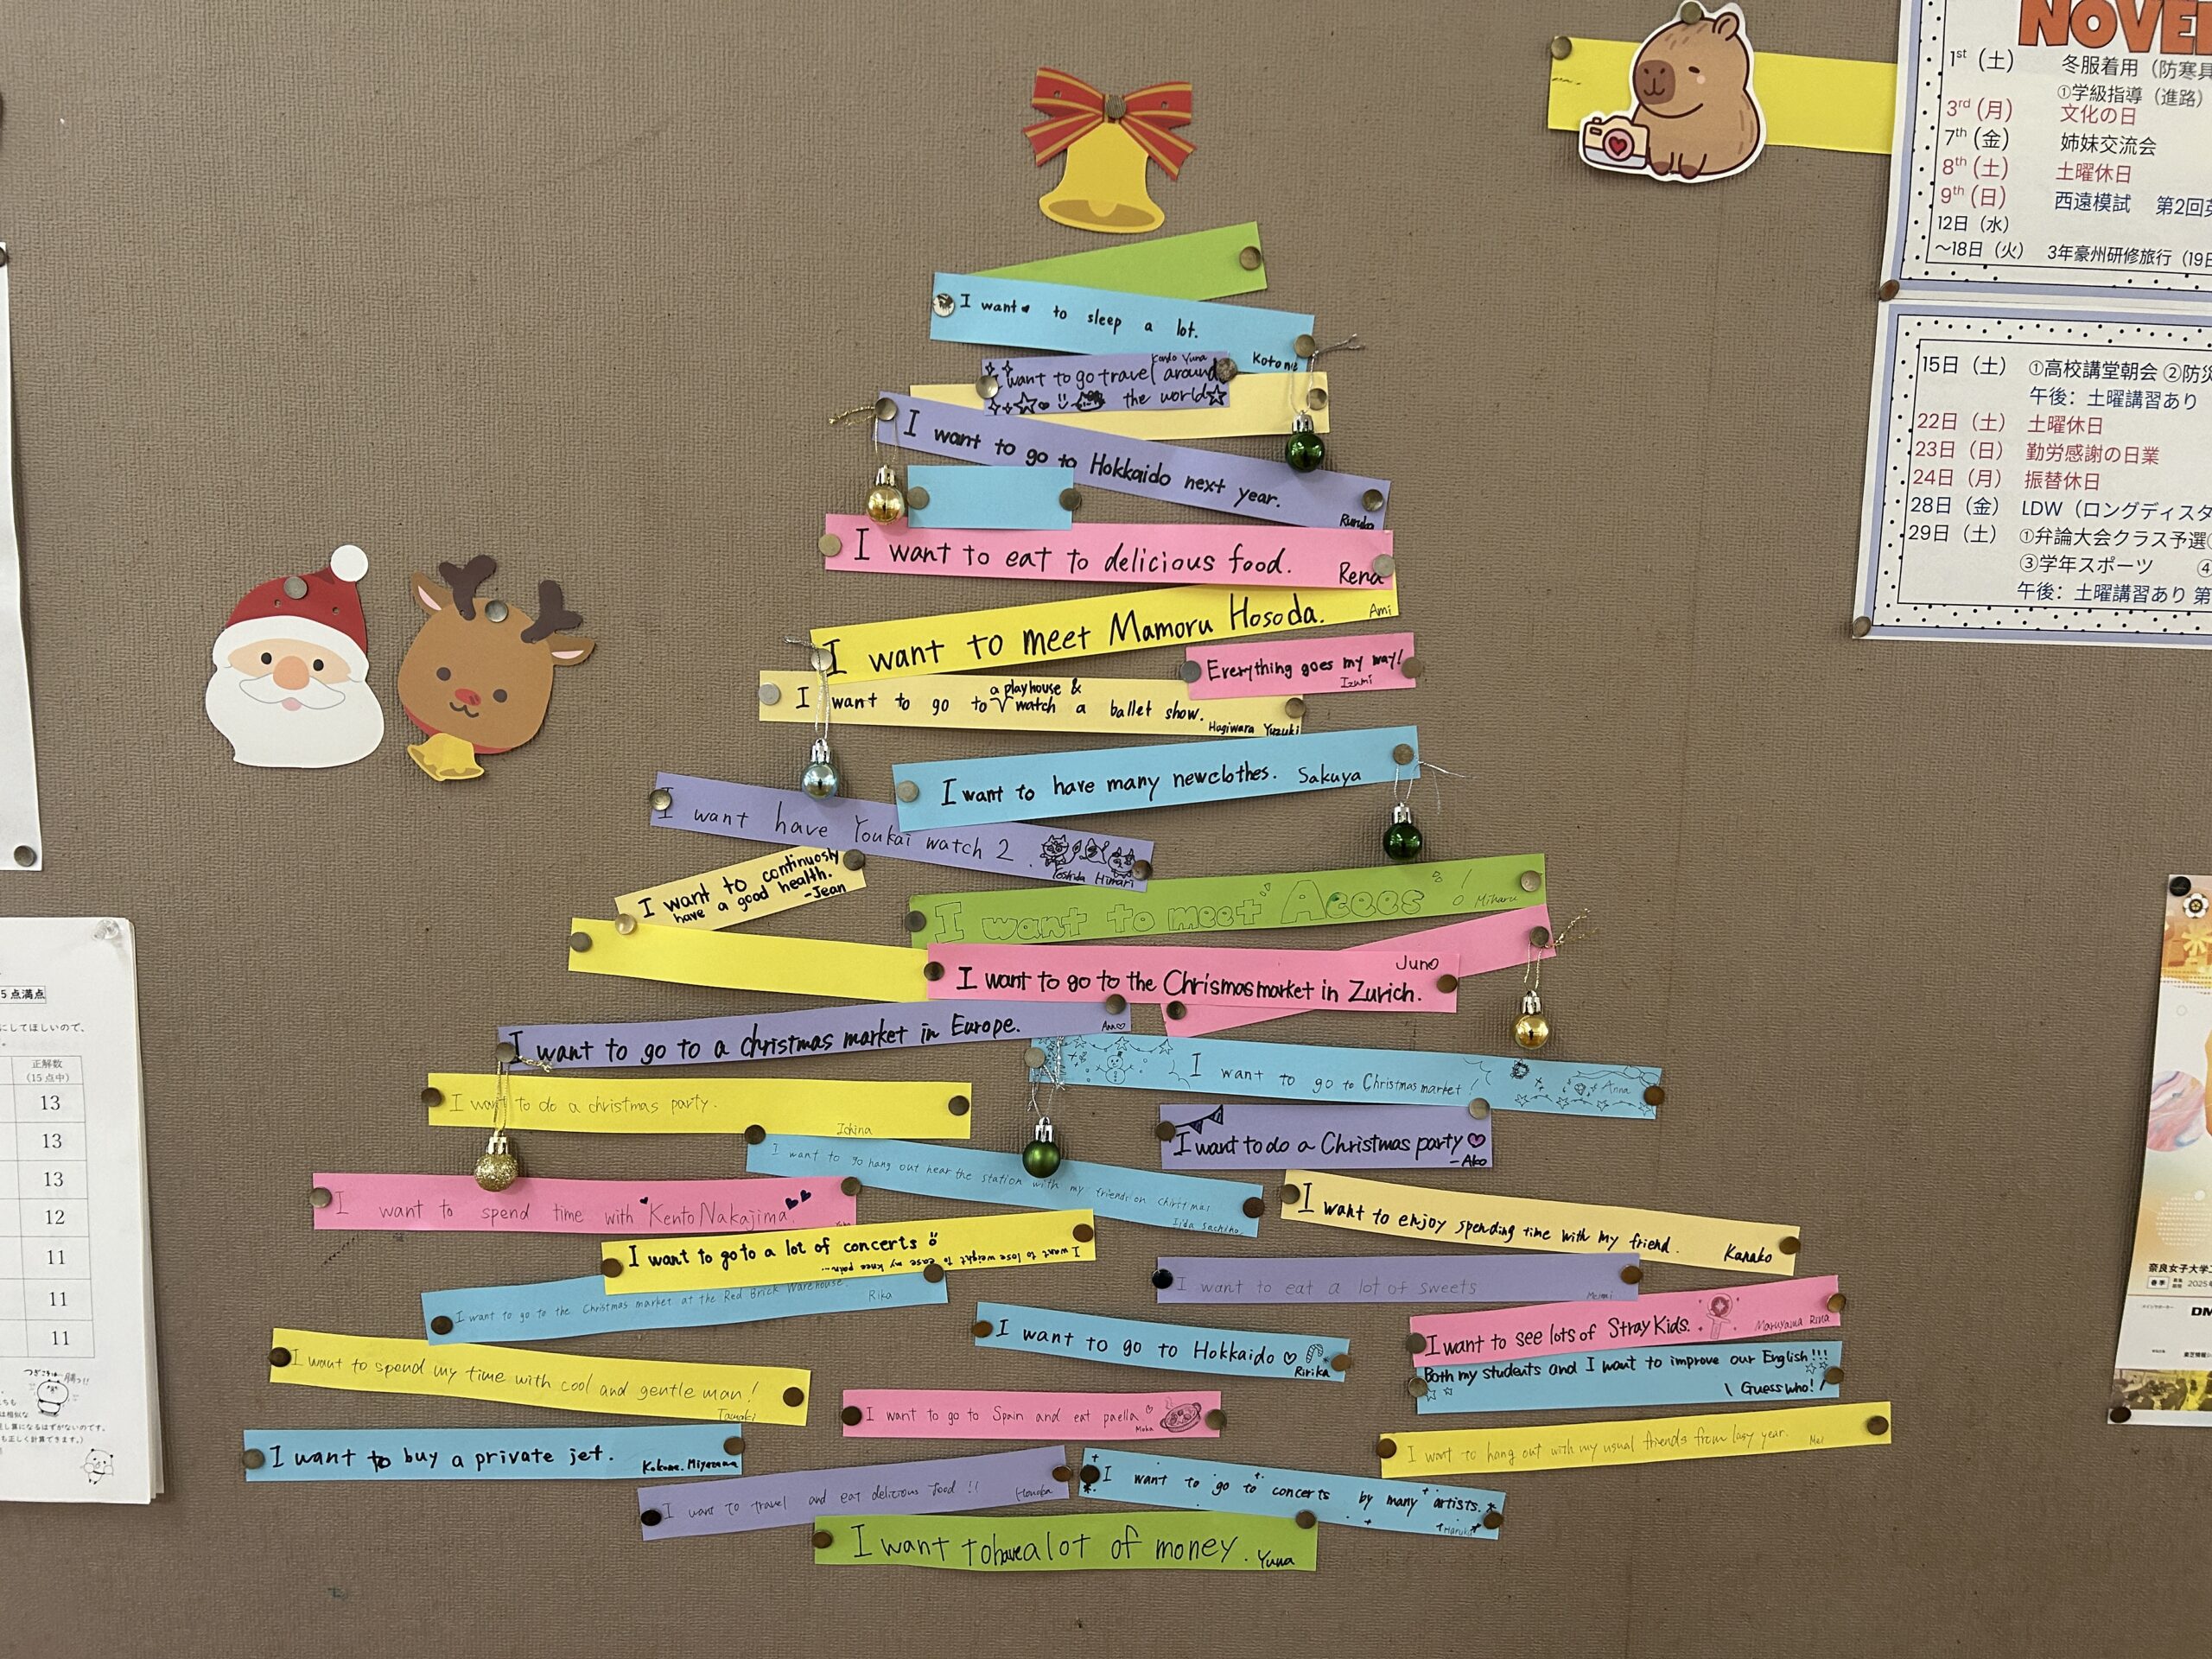 I want to sleep a lot.
Kotone
Kondo Yuna
I want to go travel around
the world
I want to go to Hokkaido next year.
Ruruka
I want to eat to delicious food.
Rena
I want to meet Mamoru Hosoda.
Ami
Everything goes my way!
Izumi
a playhouse &
I want to go to watch a ballet show.
Hagiwara Yuzuki
I want to have many newclothes. Sakuya
I want have Youkai watch 2.
Yoshida Himari
I want to continuosly
have a good health.
-Jean
I want to meet Acees!
Miharu
Juno
I want to go to the Chrismasmarket in Zurich.
I want to go to a christmas market in Europe.
I want to go to Christmas market!
Anna
I want to do a christmas party.
Ichina
I want to do a Christmas party
-Ako
I want to go hang out near the station with my friends on
Iida Sachiho
I want to spend time with Kento Nakajima.
I want to enjoy spending time with my friend.
Kanako
I want to go to a lot of concerts
I want to lose weight to ease my knee pain...
I want to eat a lot of sweets
Memi
I want to go to the Christmas market at the Red Brick Warehouse.
Rika
I want to see lots of Stray Kids.
Maruyama Rina
I want to go to Hokkaido
Ririka
Both my students and I want to improve our English!!!
\ Guess who! /
I want to spend my time with cool and gentle man!
Tamaki
I want to go to Spain and eat paella
Moka
I want to hang out with my usual friends from lasy year.
Mei
I want to buy a private jet.
Kokone. Miyazawa
I want to travel and eat delicious food !!
Honoka
I want to go to concerts by many artists.
Haruki
I want to have a lot of money.
Yuna
NOVE
1st (土) 冬服着用（防寒具
①学級指導（進路）
3rd (月) 文化の日
7th (金) 姉妹交流会
8th (土) 土曜休日
9th (日) 西遠模試 第2回英
12日（水）
～18日（火） 3年豪州研修旅行（19日
15日（土） ①高校講堂朝会 ②防災
午後：土曜講習あり
22日（土） 土曜休日
23日（日） 勤労感謝の日業
24日（月） 振替休日
28日（金） LDW（ロングディスタ
29日（土） ①弁論大会クラス予選
③学年スポーツ ④
午後：土曜講習あり 第
5点満点
にしてほしいので、
正解数
(15点中)
13
13
13
12
11
11
11
つぎこそは 勝つ!!
ちも
は相似な
し算になるはずがないのです。
も正しく計算できます。)
奈良女子大学
春季
2025
DM